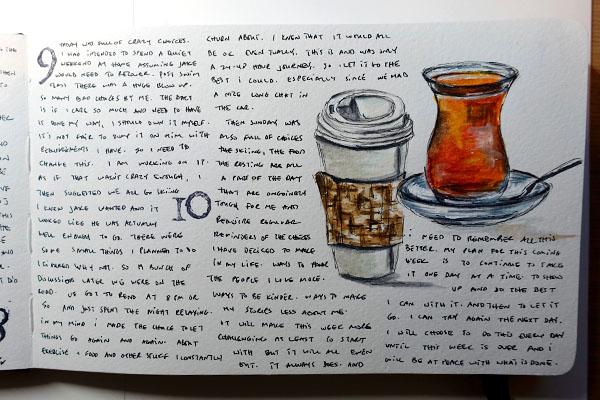 9 TODAY WAS FULL OF CRAZY CHOICES.
I HAD INTENDED TO SPEND A QUIET
WEEKEND AT HOME ASSUMING JAKE
WOULD NEED TO RECOVER. POST SWIM
CLASS THERE WAS A HUGE BLOW UP.
SO MANY BAD CHOICES BY ME. THE FACT
IS IF I CARE SO MUCH AND NEED TO HAVE
IT DONE MY WAY, I SHOULD OWN IT MYSELF.
IT'S NOT FAIR TO DUMP IT ON HIM WITH
REQUIREMENTS I HAVE. SO I NEED TO
CHANGE THIS. I AM WORKING ON IT.
AS IF THAT WASN'T CRAZY ENOUGH, I
THEN SUGGESTED WE ALL GO SKIING
I KNEW JAKE WANTED AND IT
LOOKED LIKE HE WAS ACTUALLY
WELL ENOUGH TO GO. THERE WERE
SOME SMALL THINGS I PLANNED TO DO
I FIGURED WHY NOT. SO A BUNCH OF
DISCUSSIONS LATER WE WERE ON THE
ROAD. WE GOT TO BOND AT 8 PM OR
SO AND JUST SPENT THE NIGHT RELAXING.
IN MY MIND I MADE THE CHOICE TO LET
THINGS GO AGAIN AND AGAIN. ABOUT
EXERCISE & FOOD AND OTHER STUFF I CONSTANTLY
CHURN ABOUT. I KNEW THAT IT WOULD ALL
BE OK EVENTUALLY. THIS IS AND WAS ONLY
A 24-48 HOUR JOURNEY. SO I LET IT GO THE
BEST I COULD. ESPECIALLY SINCE WE HAD
A NICE LONG CHAT IN
THE CAR.
10 THEN SUNDAY WAS
ALSO FULL OF CHOICES
THE SKIING, THE FOOD
THE RESTING ARE ALL
A PART OF THE DAY
THAT ARE ONGOINGLY
TOUGH FOR ME AND
REQUIRE REGULAR
REMINDERS OF THE CHOICES
I HAVE DECIDED TO MAKE
IN MY LIFE. WAYS TO HONOR
THE PEOPLE I LOVE MORE.
WAYS TO BE KINDER. WAYS TO MAKE
MY STORIES LESS ABOUT ME.
IT WILL MAKE THIS WEEK MORE
CHALLENGING AT LEAST TO START
WITH BUT IT WILL ALL EVEN
OUT. IT ALWAYS DOES. AND
I NEED TO REMEMBER ALL THIS
BETTER. MY PLAN FOR THIS COMING
WEEK IS TO CONTINUE TO TAKE
IT ONE DAY AT A TIME. TO SHOW
UP AND DO THE BEST
I CAN WITH IT. AND THEN TO LET IT
GO. I CAN TRY AGAIN THE NEXT DAY.
I WILL CHOOSE TO DO THIS EVERY DAY
UNTIL THIS WEEK IS OVER AND I
WILL BE AT PEACE WITH WHAT IS DONE.